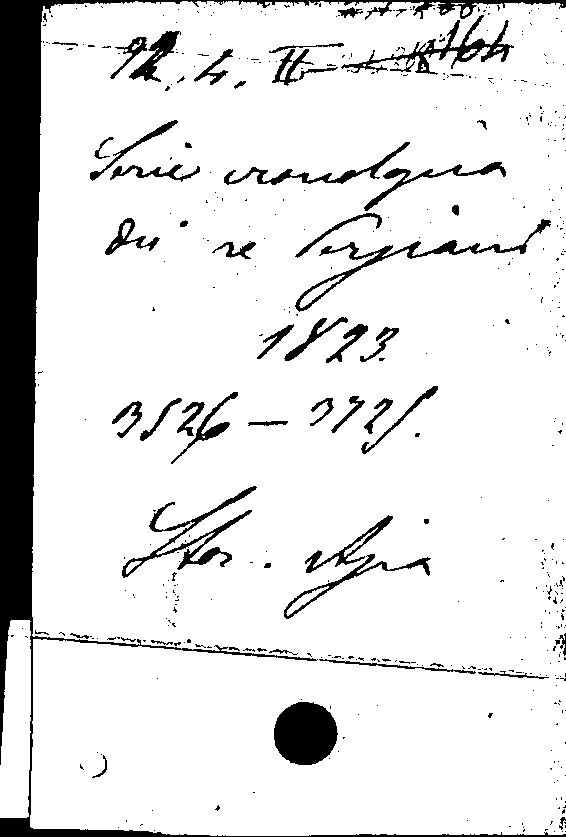 92. 4. II 164
Serie cronolgica
dei re Persiani
1823.
3526 — 3725.
Stor. Asia